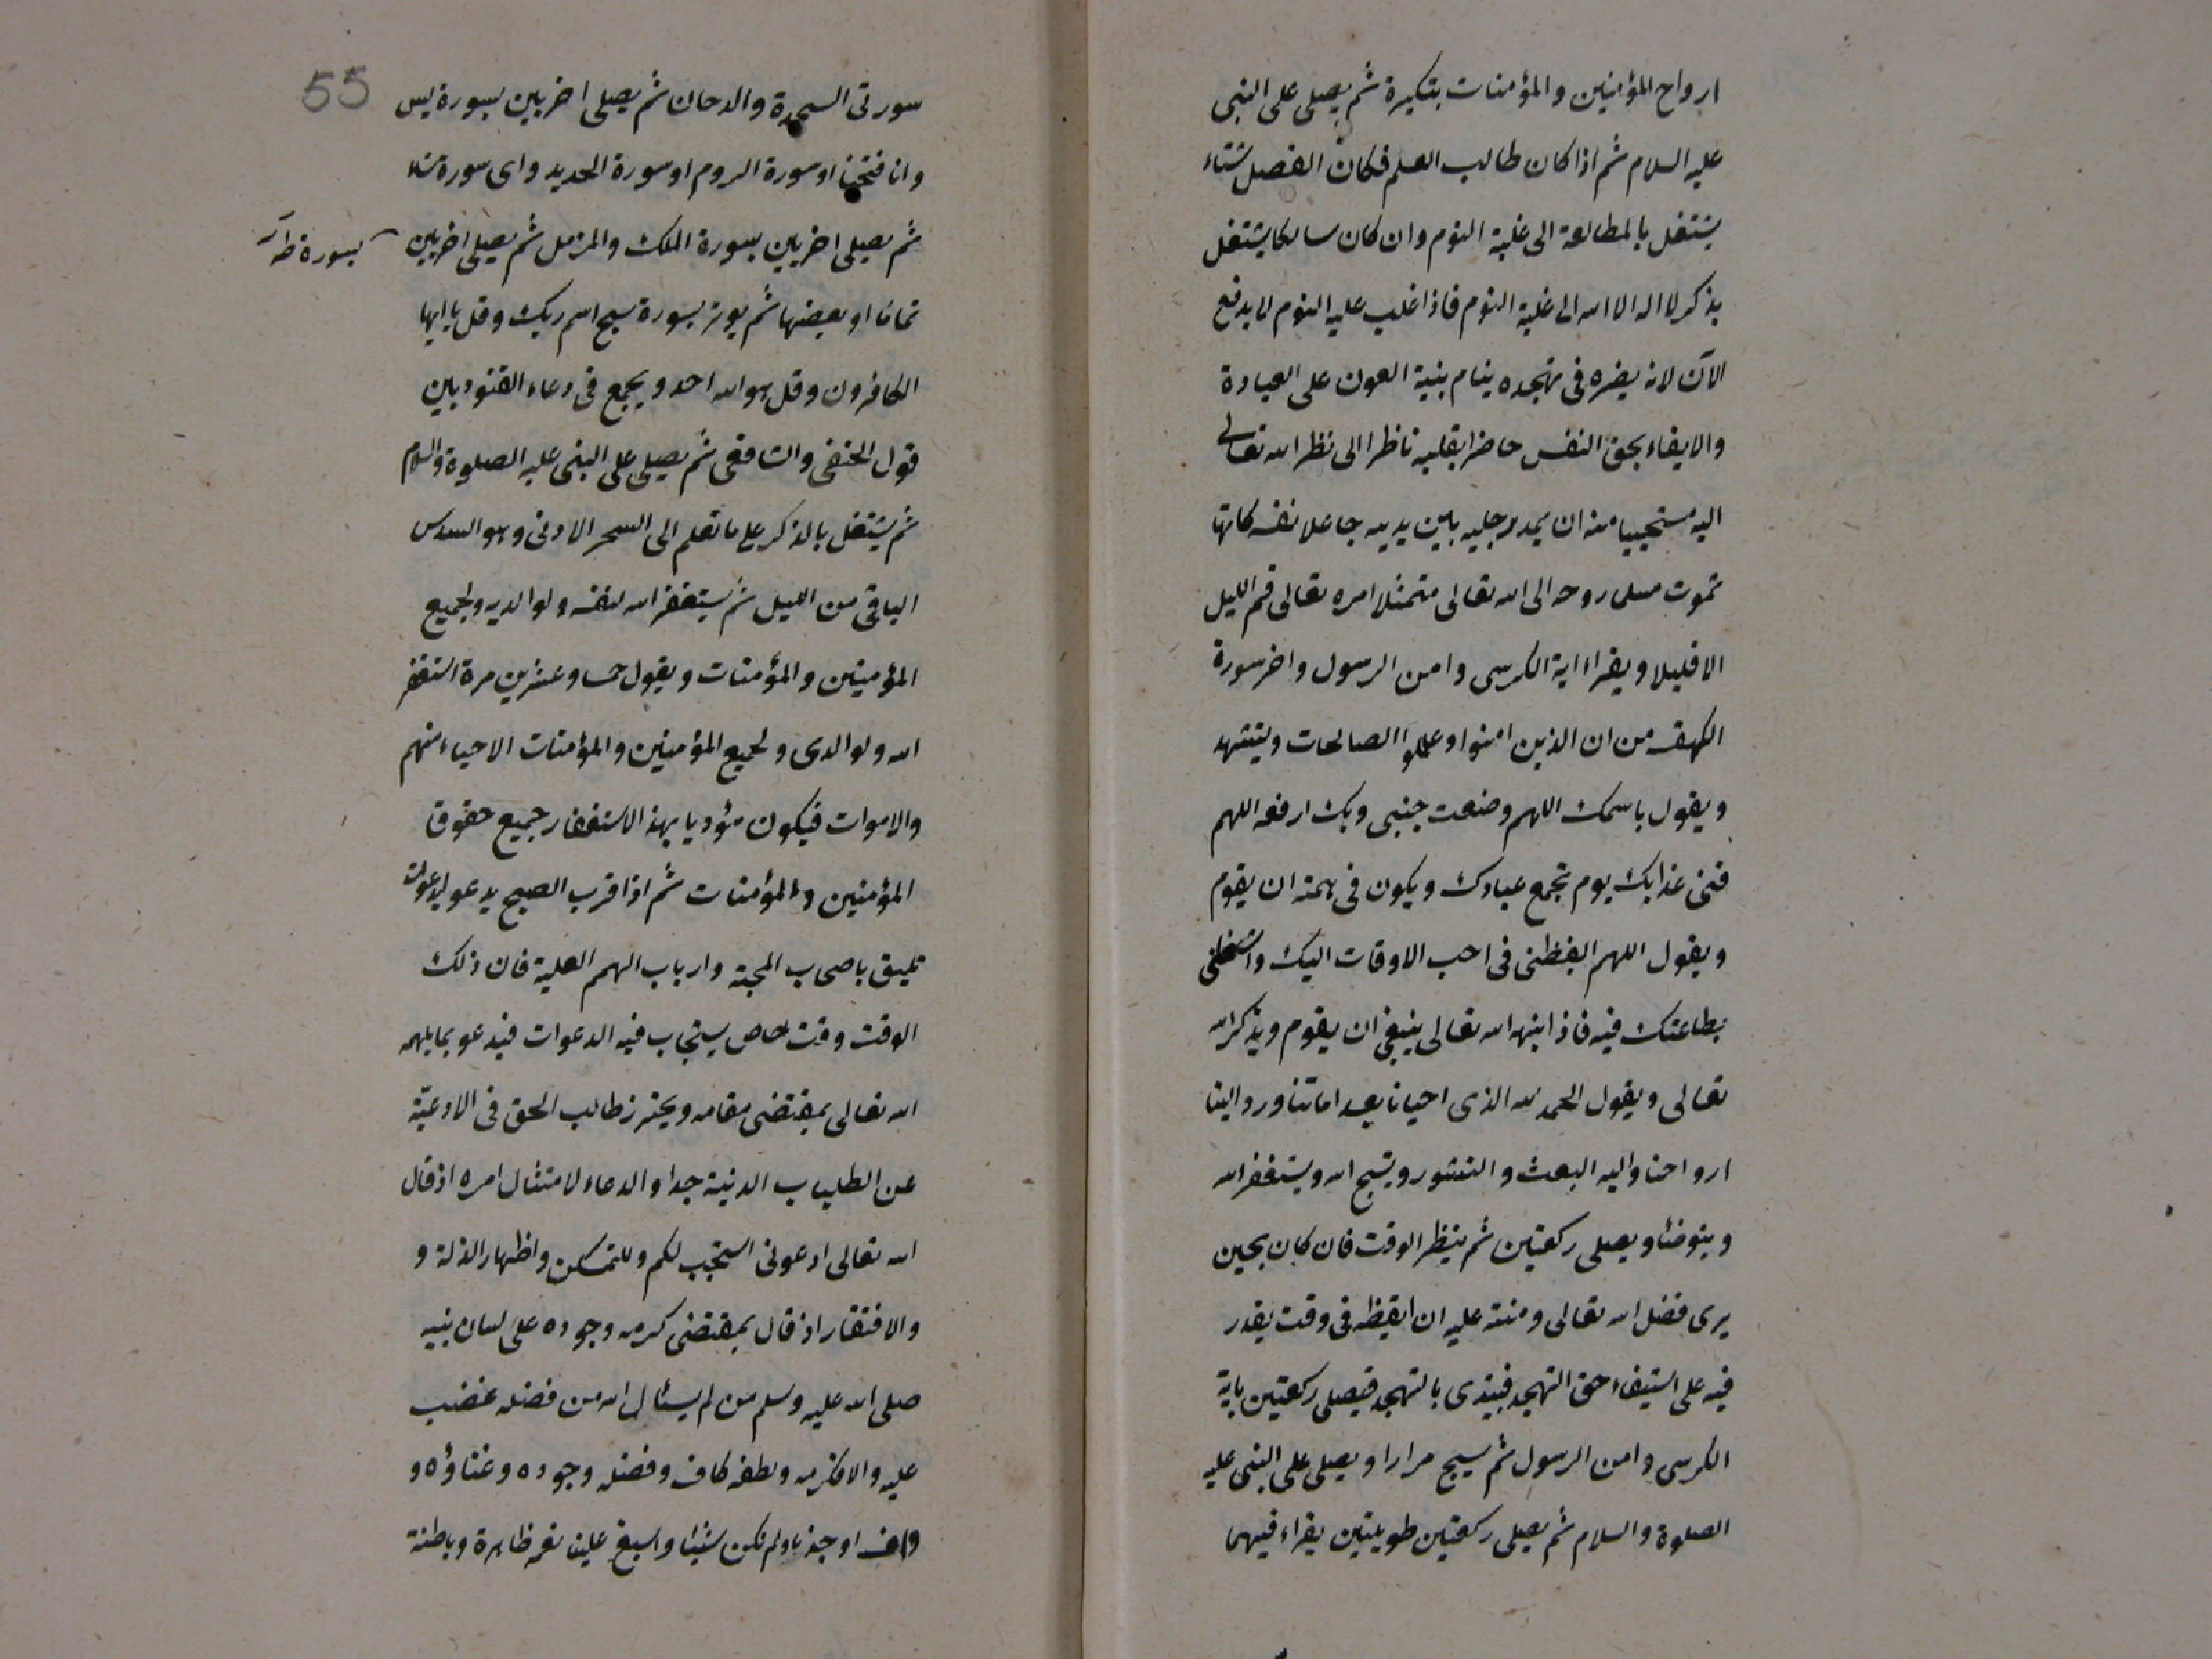 ارواح المؤمنين والمؤمنات بتكبيرة ثم يصلى على النبى
عليه السلام ثم اذا كان طالب العلم فكان الفصل شتاء
يشتغل بالمطالعة الى غلبة النوم وان كان سالكا يشتغل
بذكر لا اله الا الله الى غلبة النوم فاذا غلب عليه النوم لا يدفع
الآن لانه يضره فى تهجده ينام بنية العون على العبادة
والايفاء بحق النفس حاضرا بقلبه ناظرا الى نظر الله تعالى
اليه مستحييا منه ان يمد رجليه بين يديه جاعلا نفسه كانها
تموت مسلما روحه الى الله تعالى متمثلا امره تعالى قم الليل
الا قليلا ويقراء اية الكرسى وامن الرسول واخر سورة
الكهف من ان الذين امنوا وعملوا الصالحات ويتشهد
ويقول باسمك اللهم وضعت جنبى وبك ارفعه اللهم
قنى عذابك يوم تجمع عبادك ويكون فى همته ان يقوم
ويقول اللهم ايقظنى فى احب الاوقات اليك واشغلنى
بطاعتك فيه فاذا انبهه الله تعالى ينبغى ان يقوم ويذكر الله
تعالى ويقول الحمد لله الذى احيانا بعد اماتنا ورد الينا
ارواحنا واليه البعث والنشور ويسبح الله ويستغفر الله
ويتوضأ ويصلى ركعتين ثم ينظر الوقت فان كان بحين
يرى فضل الله تعالى ومنته عليه ان ايقظه فى وقت يقدر
فيه على استيفاء حق التهجد فيبتدى بالتهجد فيصلى ركعتين باية
الكرسى وامن الرسول ثم يسبح مرارا ويصلى على النبى عليه
الصلوة والسلام ثم يصلى ركعتين طويلتين يقراء فيهما
55
سورتى السجدة والدخان ثم يصلى اخريين بسورة يس
وانا فتحنا او سورة الروم او سورة الحديد واى سورة شاء
ثم يصلى اخريين بسورة الملك والمزمل ثم يصلى اخريين
بسورة طه
تماما او بعضها ثم يوتر بسورة سبح اسم ربك وقل يا ايها
الكافرون وقل هو الله احد ويجمع فى دعاء القنوت بين
قول الحنفى والشافعى ثم يصلى على النبى عليه الصلوة والسلام
ثم يشتغل بالذكر على ما تعلم الى السحر الادنى وهو السدس
الباقى من الليل ثم يستغفر الله لنفسه ولوالديه ولجميع
المؤمنين والمؤمنات ويقول خمسا وعشرين مرة استغفر
الله ولوالدى ولجميع المؤمنين والمؤمنات الاحياء منهم
والاموات فيكون مؤديا بهذا الاستغفار جميع حقوق
المؤمنين والمؤمنات ثم اذا قرب الصبح يدعو بدعوات
تليق باصحاب المحبة وارباب الهمم العلية فان ذلك
الوقت وقت خاص يستجاب فيه الدعوات فيدعو بما يلهمه
الله تعالى بمقتضى مقامه ويحترز طالب الحق فى الادعية
عن الطلباب الدنية جدا والدعاء لامتثال امره اذ قال
الله تعالى ادعونى استجب لكم وللتمسكن واظهار الذلة و
والافتقار اذ قال بمقتضى كرمه وجوده على لسان نبيه
صلى الله عليه وسلم من لم يسئال الله من فضله غضب
عليه والا فكرمه ولطفه كاف وفضله وجوده وغناؤه و
واف اوجدنا ولم نكن شيئا واسبغ علينا نعمه ظاهرة وباطنة